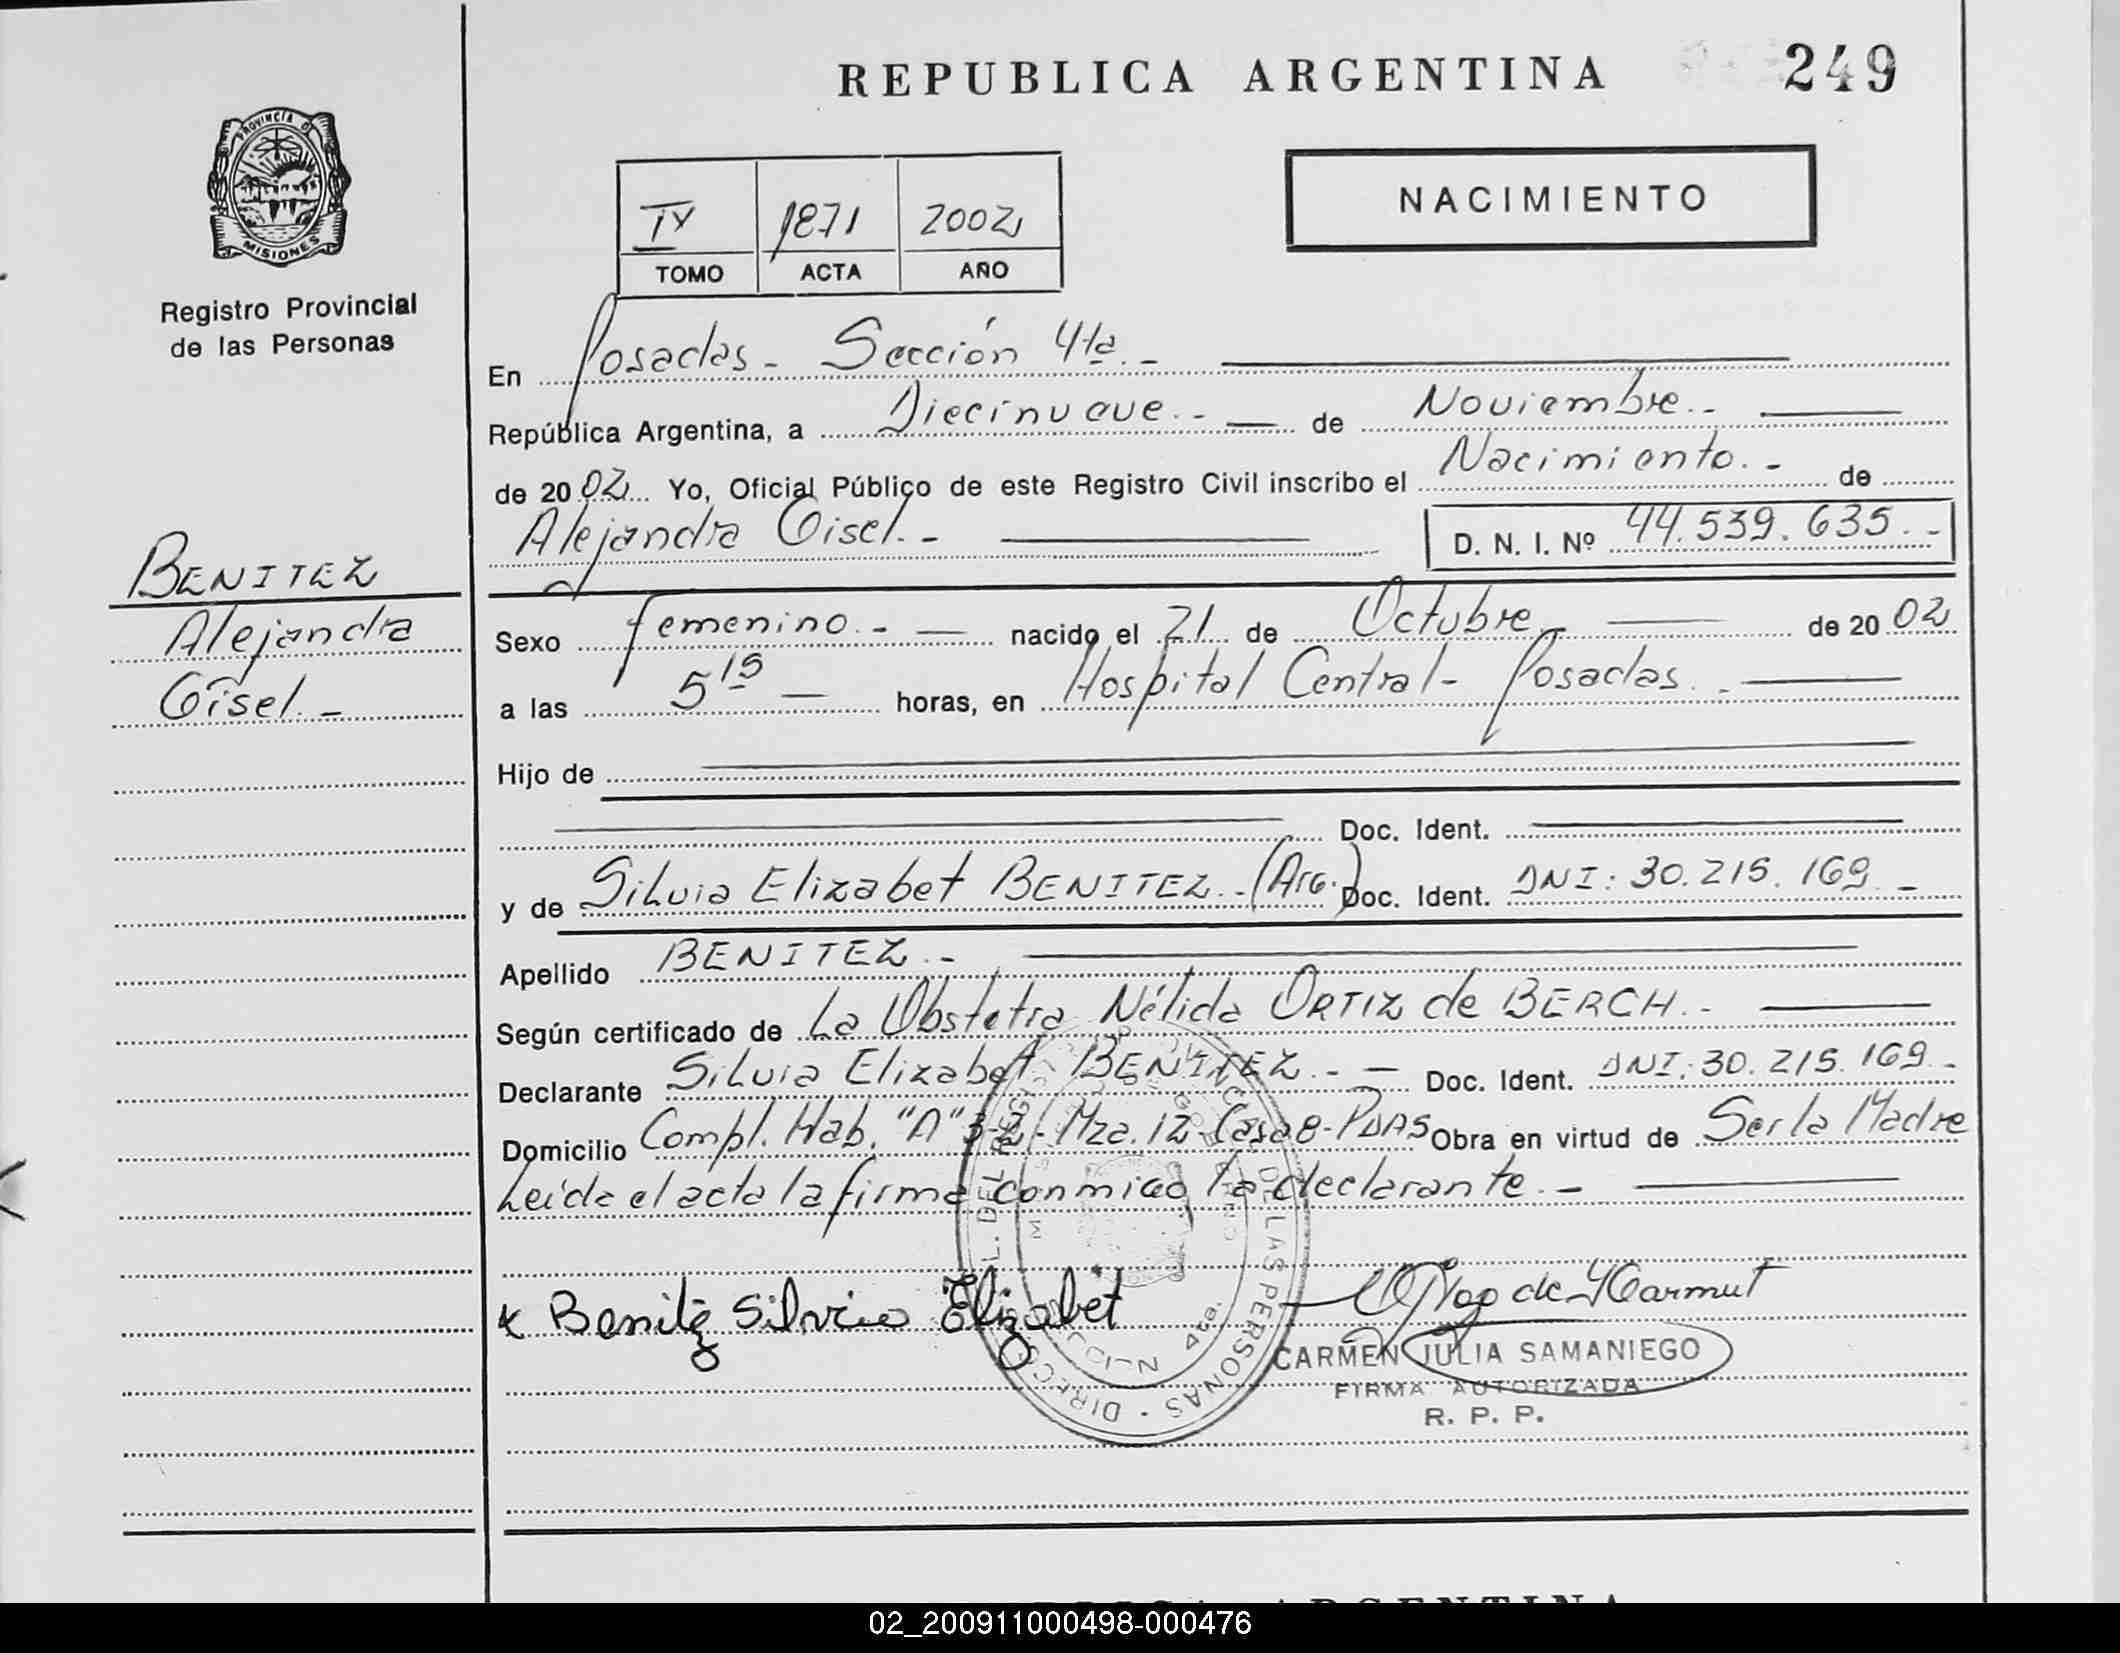 REPUBLICA ARGENTINA 249
PROVINCIA DE
MISIONES
Registro Provincial
de las Personas
NACIMIENTO
IV 1871 2002
TOMO ACTA AÑO
En Posadas - Sección 4ta. -
República Argentina, a Diecinueve. - de Noviembre. -
de 20 02 Yo, Oficial Público de este Registro Civil inscribo el Nacimiento. - de
Alejandra Gisel. - D. N. I. Nº 44.539.635. -
BENITEZ
Alejandra
Gisel. -
Sexo femenino. - nacido el 21 de Octubre de 20 02
a las 5 15 horas, en Hospital Central - Posadas. -
Hijo de
Doc. Ident.
y de Silvia Elizabet BENITEZ. - (Arg.) Doc. Ident. DNI: 30.215.169 -
Apellido BENITEZ. -
Según certificado de La Obstetra Nélida ORTIZ de BERCH. -
Declarante Silvia Elizabet BENITEZ. - Doc. Ident. DNI: 30.215.169 -
Domicilio Compl. Hab. "A" 3-2 - Mza. 12 - Casa 8 - PDAS Obra en virtud de Ser la Madre
Leída el acta la firma conmigo la declarante. -
x Benitez Silvia Elizabet
CARMEN JULIA SAMANIEGO
FIRMA AUTORIZADA
R. P. P.
02_200911000498-000476